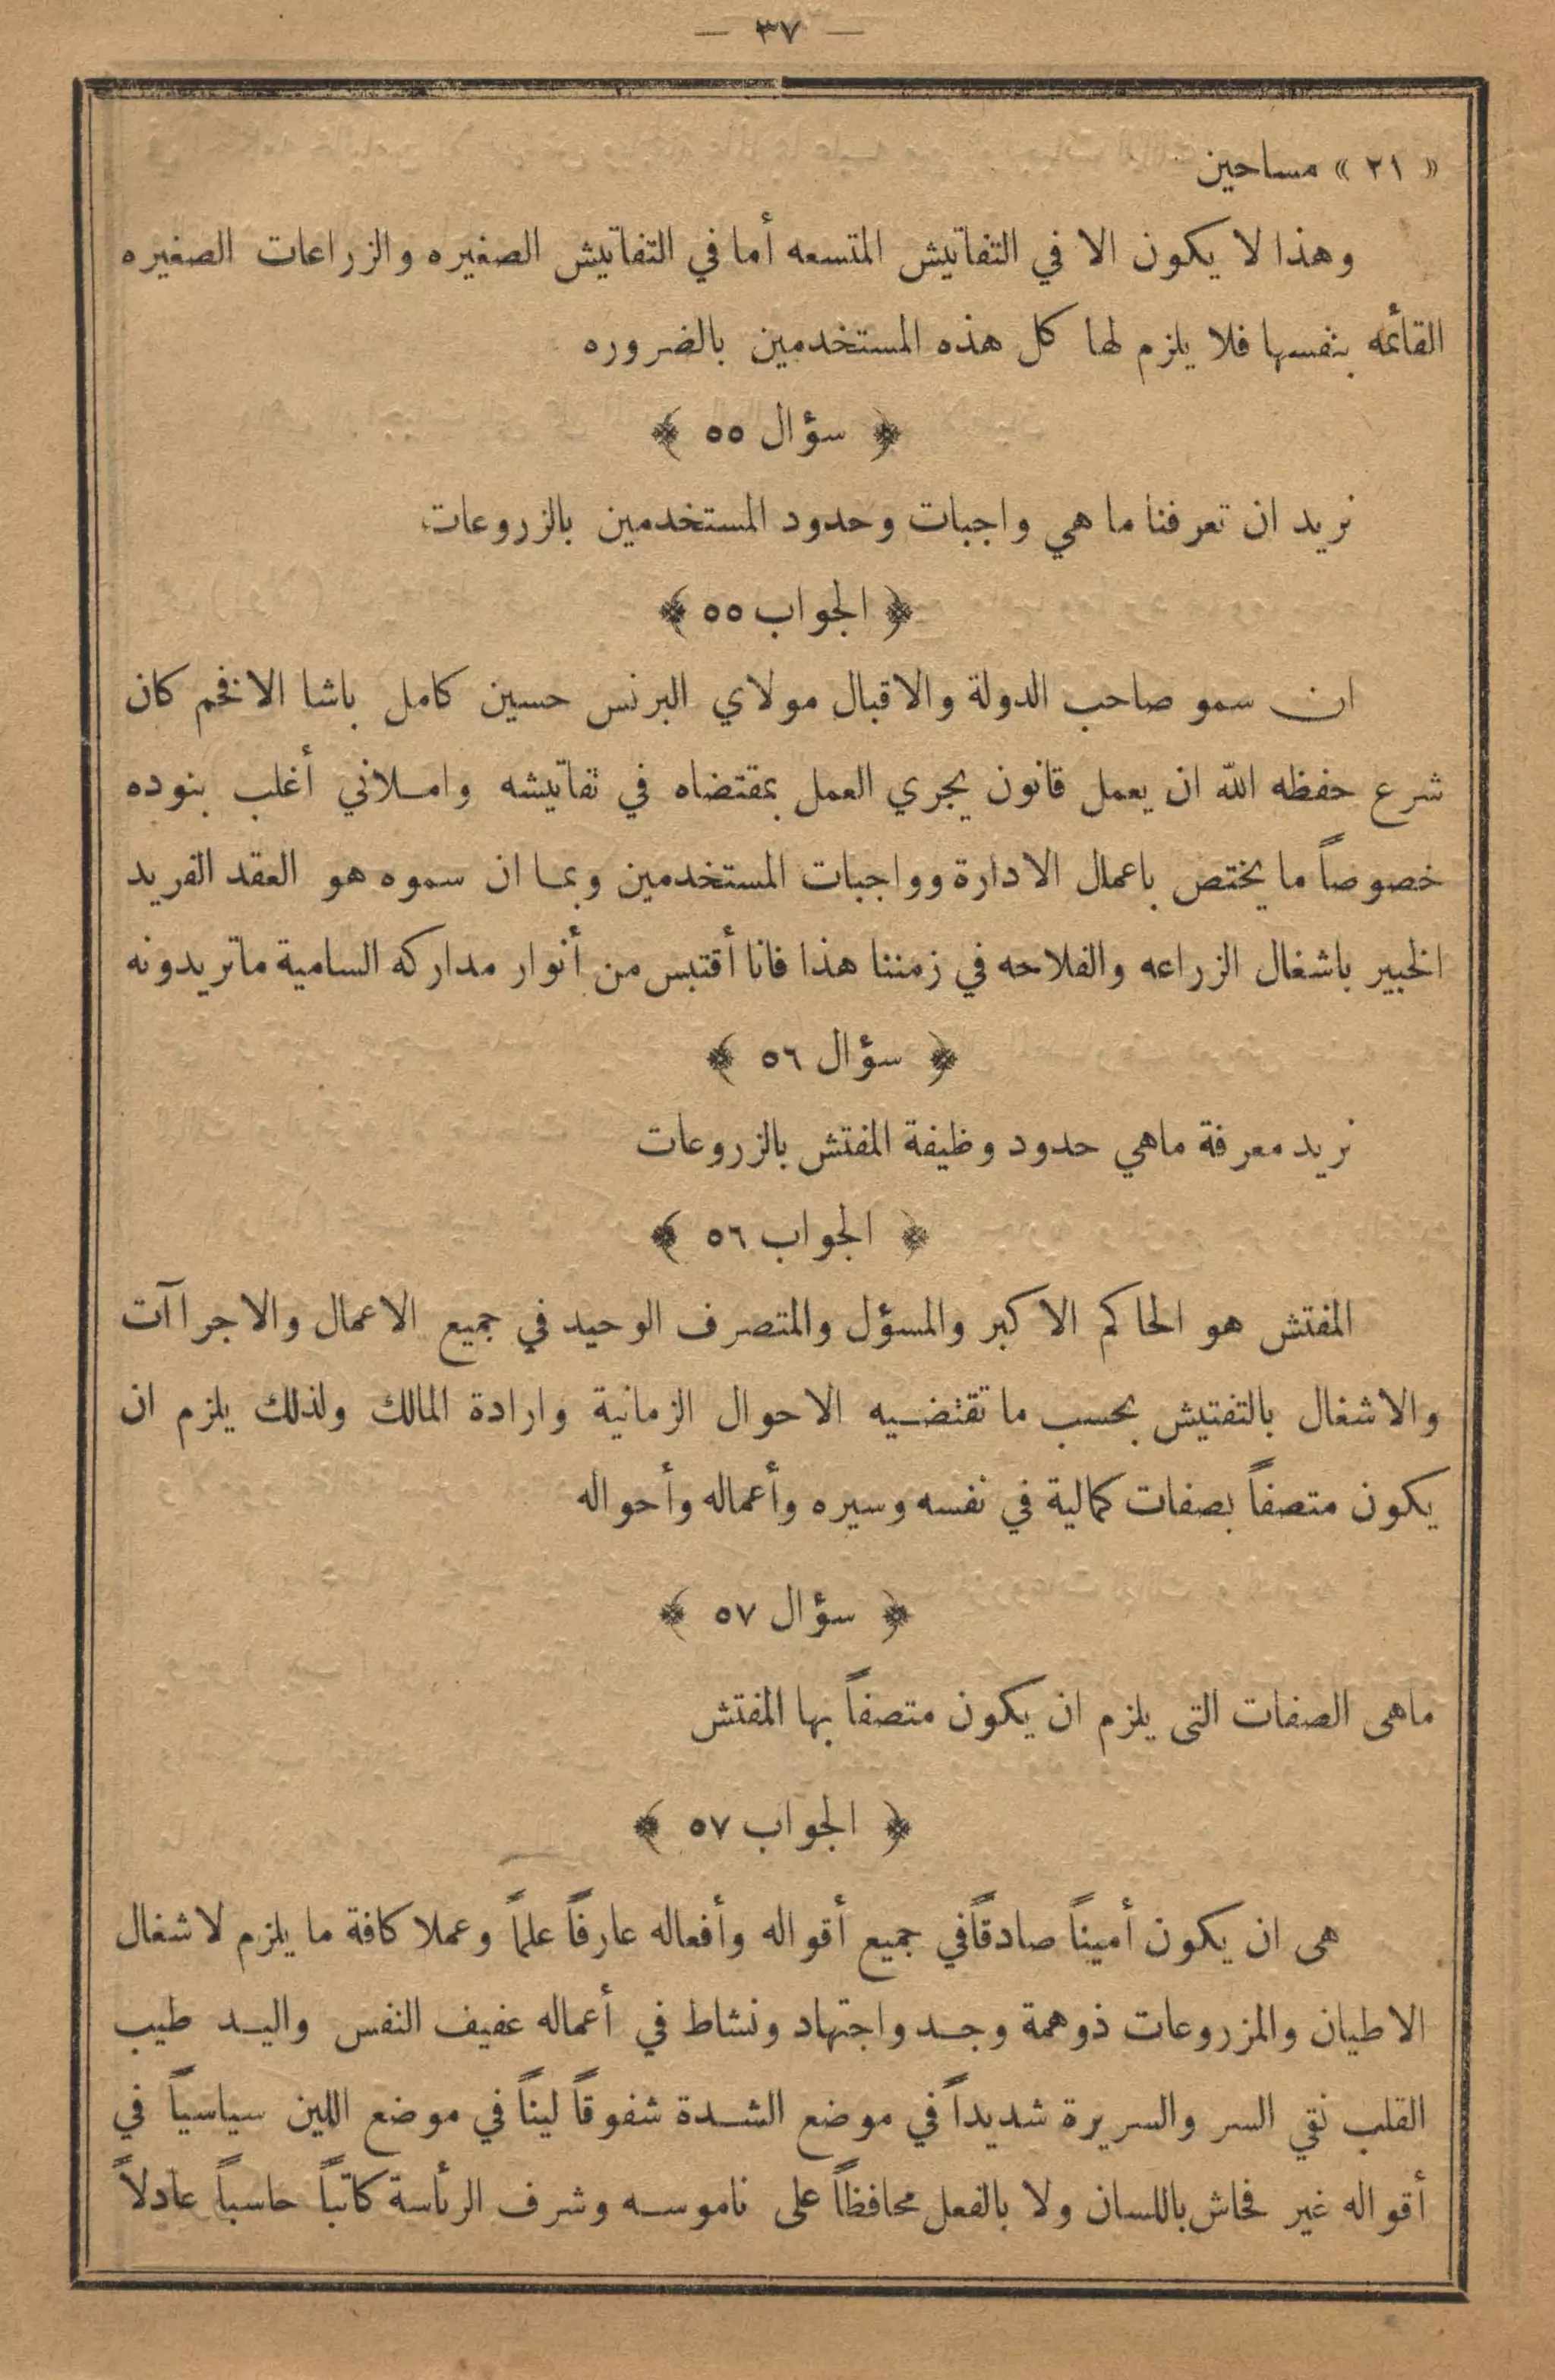 — ٣٧ —
« ٢١ » مساحين
وهذا لا يكون الا في التفاتيش المتسعه أما في التفاتيش الصغيره والزراعات الصغيره
القائمه بنفسها فلا يلزم لها كل هذه المستخدمين بالضروره
﴿ سؤال ٥٥ ﴾
نريد ان تعرفنا ما هي واجبات وحدود المستخدمين بالزروعات
﴿ الجواب ٥٥ ﴾
ان سمو صاحب الدولة والاقبال مولاي البرنس حسين كامل باشا الافخم كان
شرع حفظه الله ان يعمل قانون يجري العمل بمقتضاه في تفاتيشه واملاني أغلب بنوده
خصوصاً ما يختص باعمال الادارة وواجبات المستخدمين وبما ان سموه هو العقد الفريد
الخبير باشغال الزراعه والفلاحه في زمننا هذا فانا أقتبس من أنوار مداركه السامية ماتريدونه
﴿ سؤال ٥٦ ﴾
نريد معرفة ماهي حدود وظيفة المفتش بالزروعات
﴿ الجواب ٥٦ ﴾
المفتش هو الحاكم الاكبر والمسؤل والمتصرف الوحيد في جميع الاعمال والاجراآت
والاشغال بالتفتيش بحسب ما تقتضيه الاحوال الزمانية وارادة المالك ولذلك يلزم ان
يكون متصفاً بصفات كمالية في نفسه وسيره وأعماله وأحواله
﴿ سؤال ٥٧ ﴾
ماهى الصفات التى يلزم ان يكون متصفاً بها المفتش
﴿ الجواب ٥٧ ﴾
هى ان يكون أميناً صادقاً في جميع أقواله وأفعاله عارفاً علماً وعملا كافة ما يلزم لاشغال
الاطيان والمزروعات ذوهمة وجد واجتهاد ونشاط في أعماله عفيف النفس واليد طيب
القلب نقي السر والسريرة شديداً في موضع الشدة شفوقاً ليناً في موضع اللين سياسياً في
أقواله غير فحاش باللسان ولا بالفعل محافظاً على ناموسه وشرف الرئاسة كاتباً حاسباً عادلاً